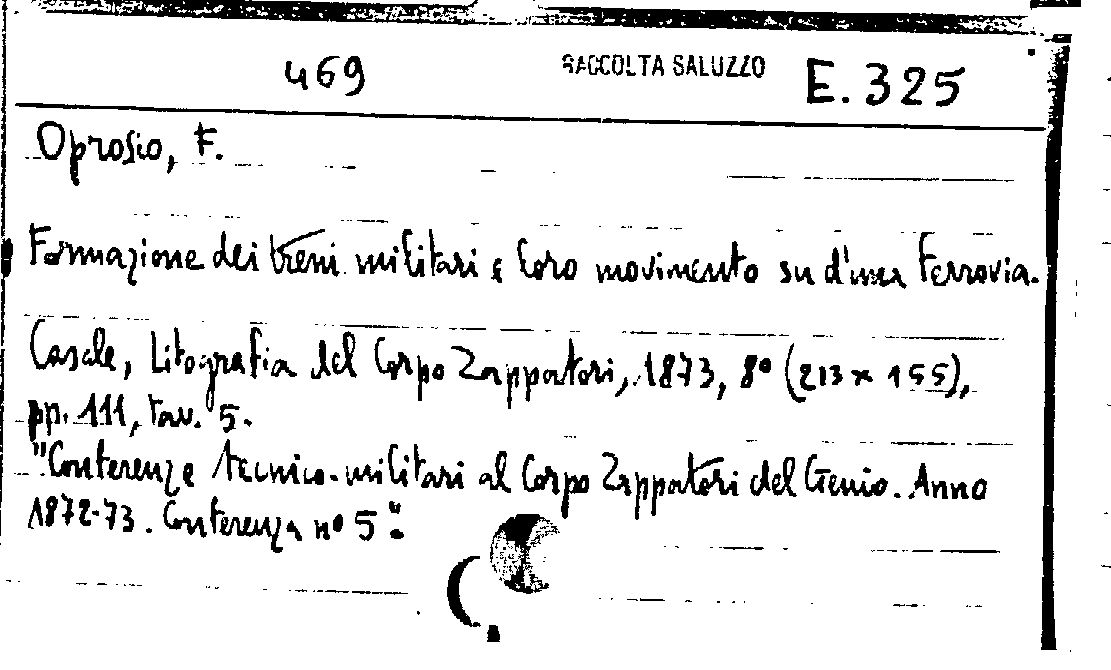 469 RACCOLTA SALUZZO E. 325
Oprosio, F.
Formazione dei treni militari e loro movimento su d'una ferrovia.
Casale, Litografia del Corpo Zappatori, 1873, 8° (213 x 155),
pp. 111, tav. 5.
"Conferenze tecnico-militari al Corpo Zappatori del Genio. Anno
1872-73. Conferenza n° 5".